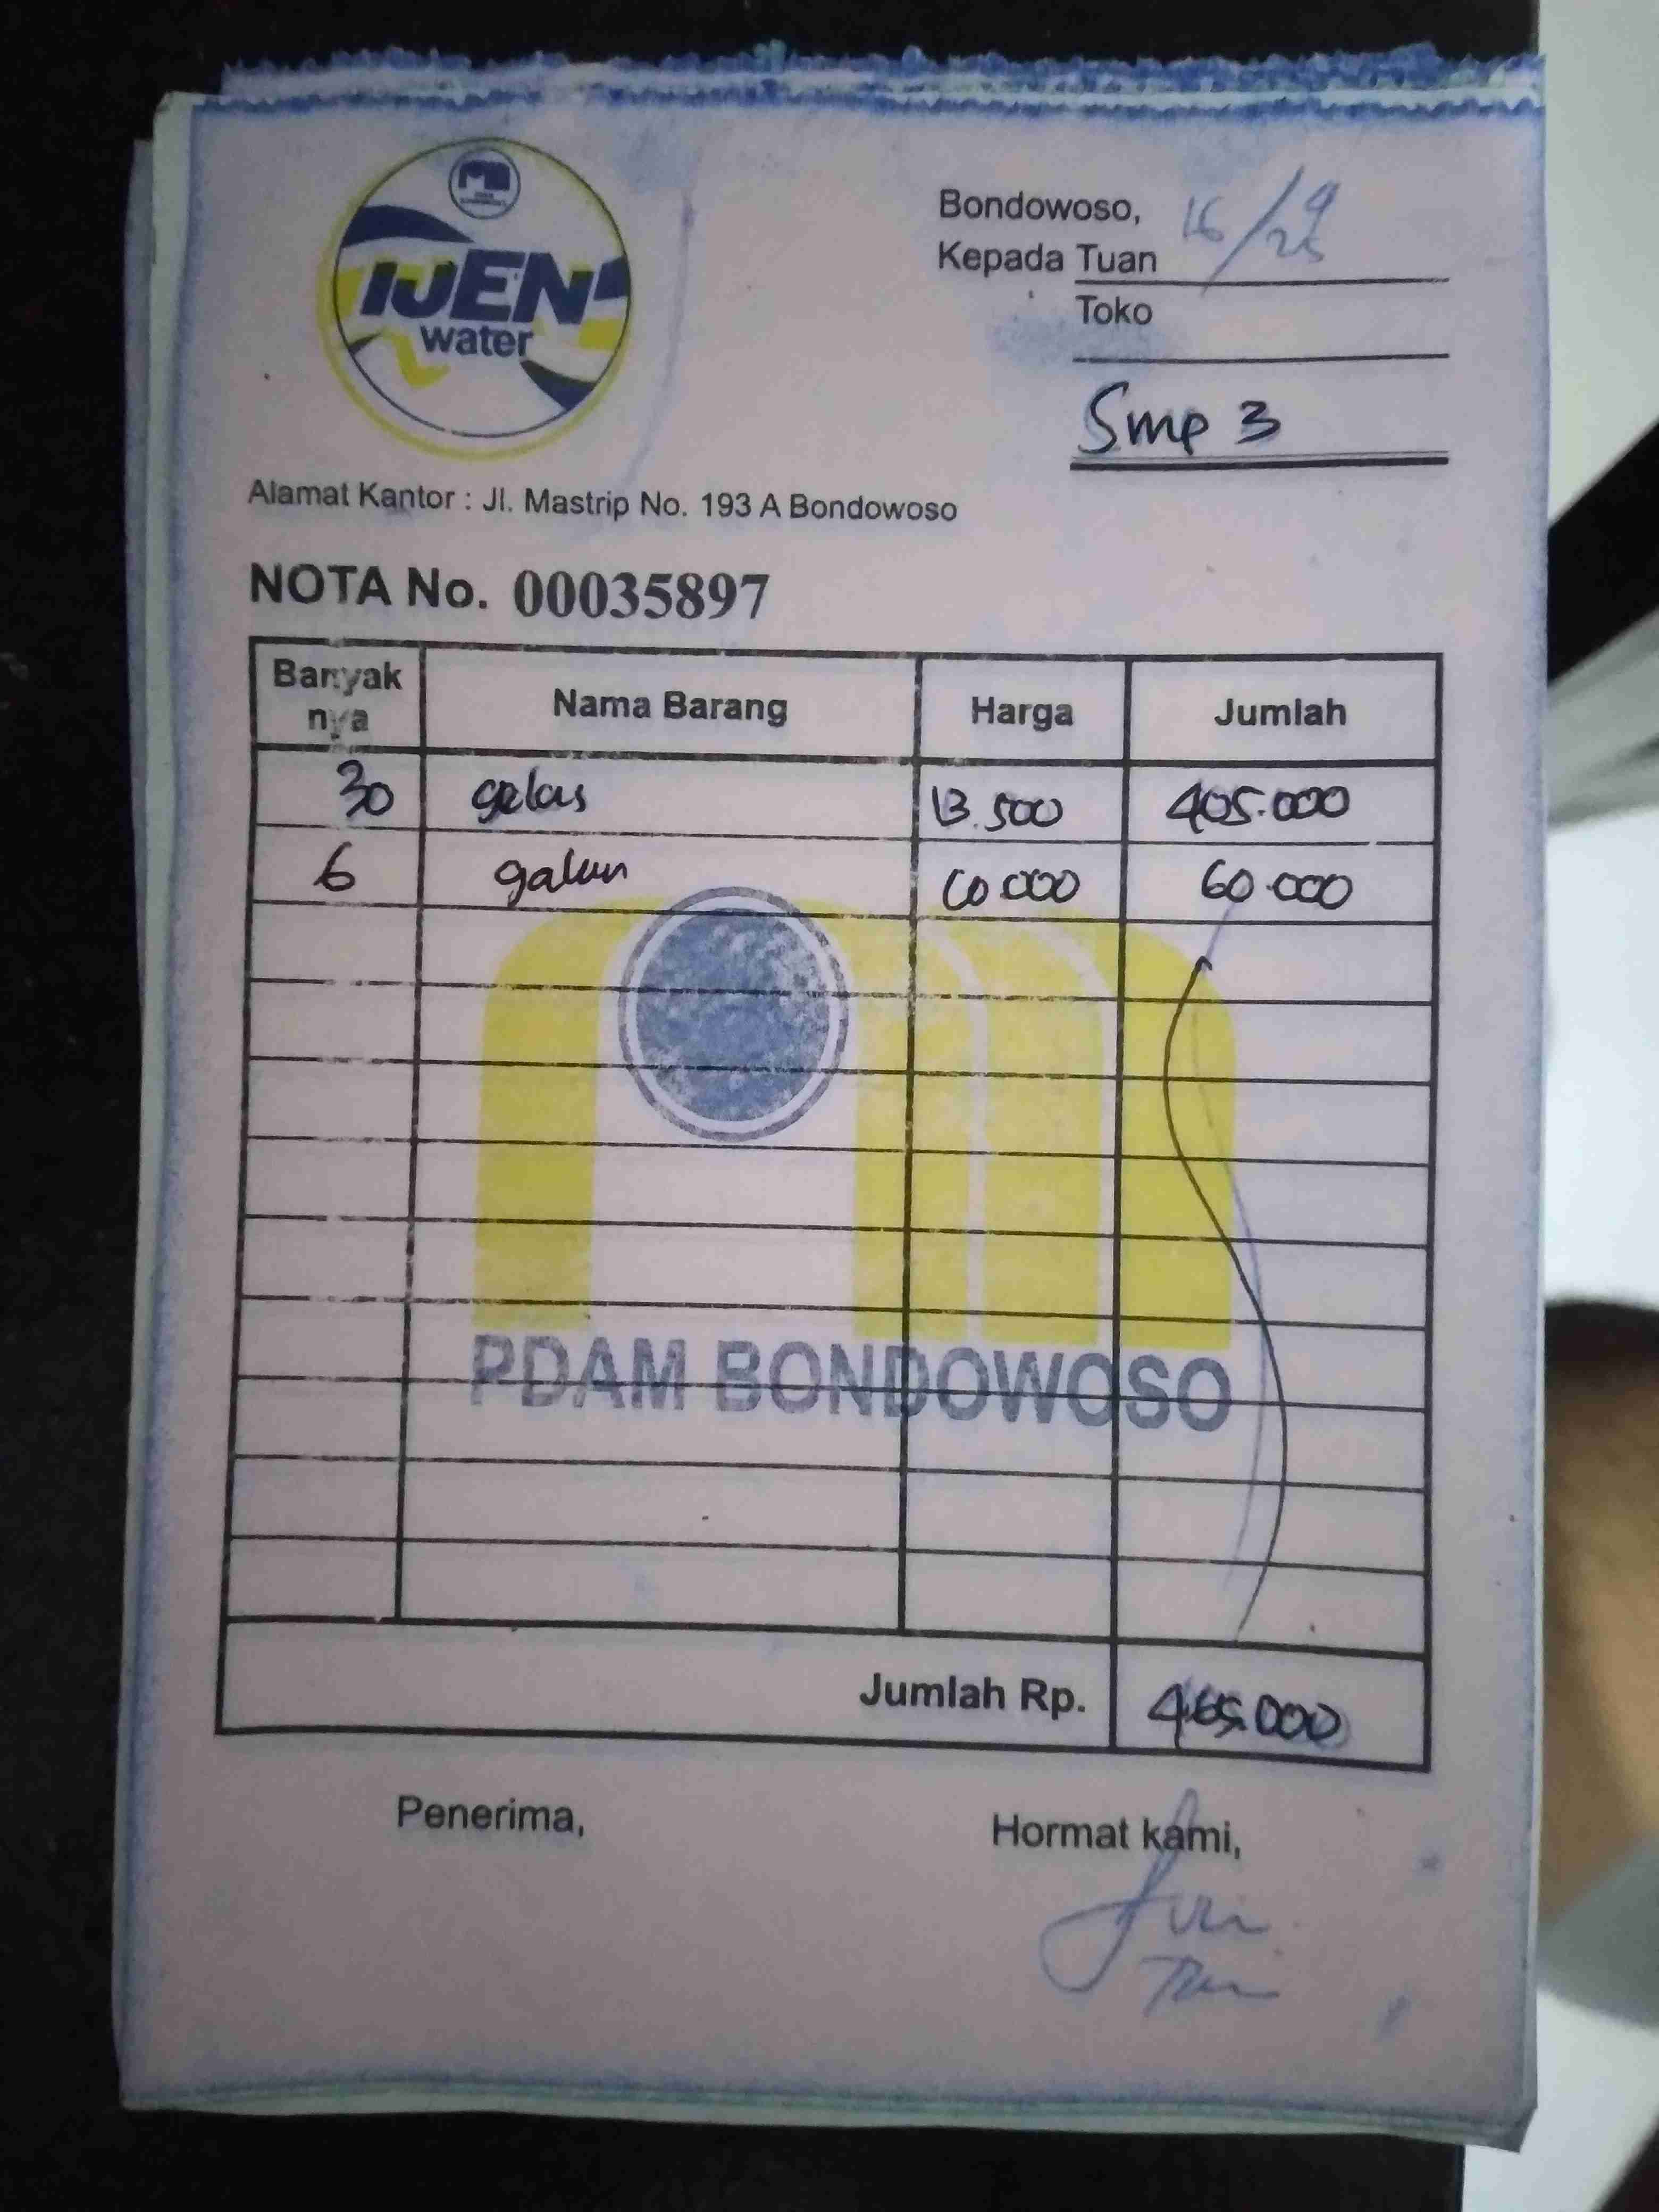 IJEN
water
Bondowoso, 16/9 25
Kepada Tuan
Toko
Smp 3
Alamat Kantor : Jl. Mastrip No. 193 A Bondowoso
NOTA No. 00035897
Banyak nya Nama Barang Harga Jumlah
30 gelas 13.500 405.000
6 galun 10.000 60.000
PDAM BONDOWOSO
Jumlah Rp. 465.000
Penerima, Hormat kami,